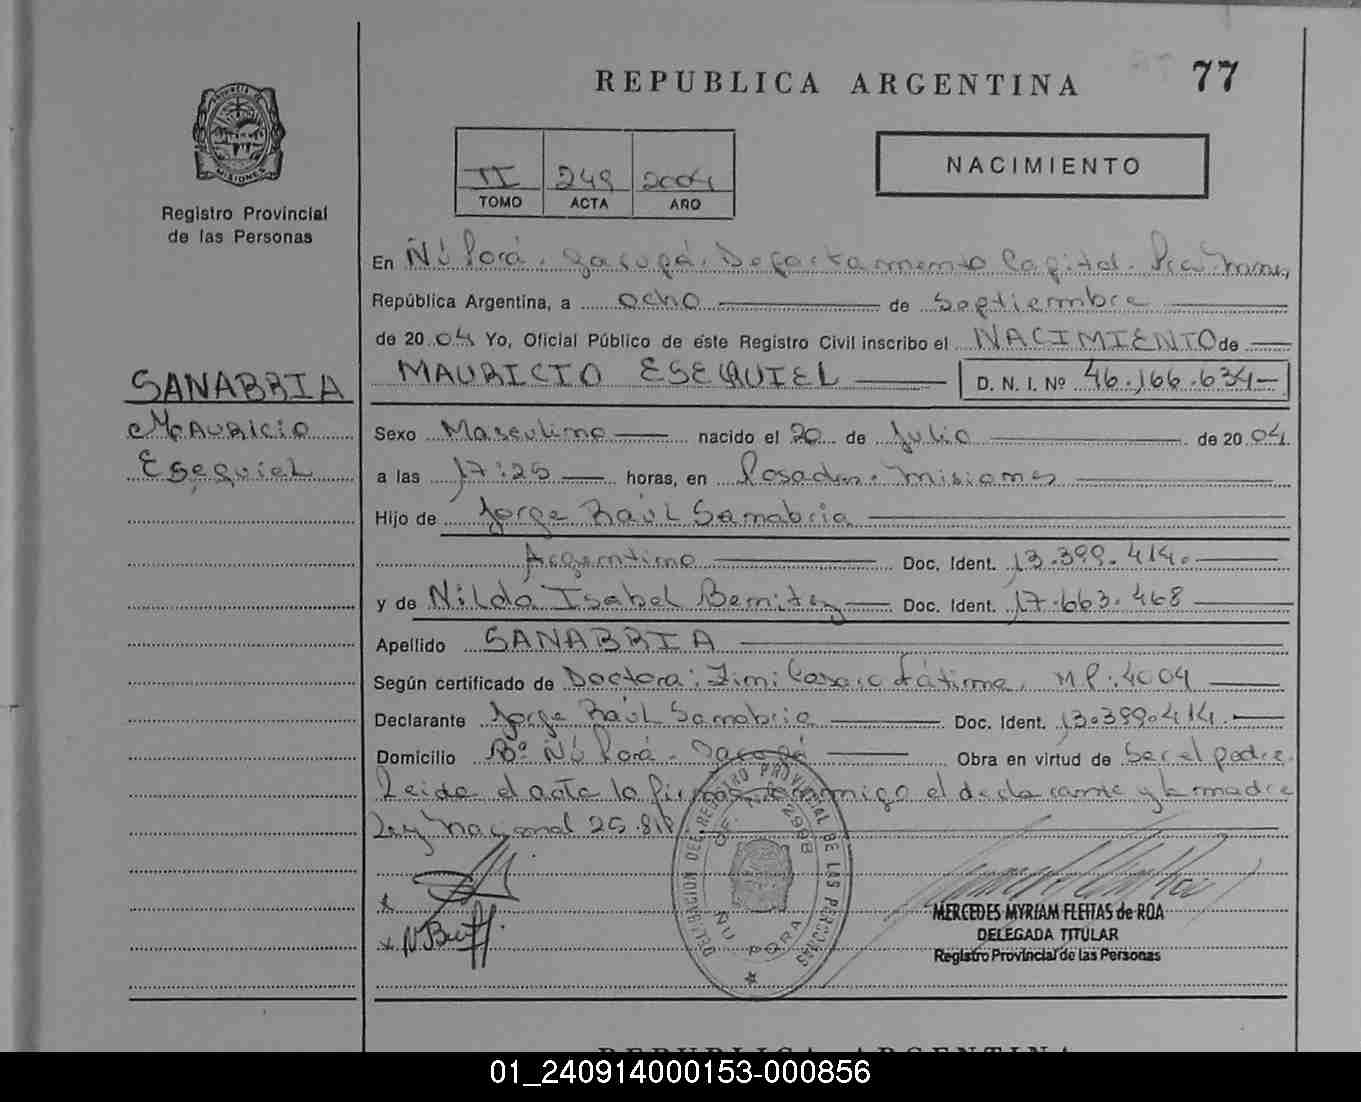 77
REPUBLICA ARGENTINA
MISIONES
Registro Provincial
de las Personas
II 249 2004
TOMO ACTA AÑO
NACIMIENTO
En Ñú Porá. Garupá. Departamento Capital.
República Argentina, a ocho de Septiembre
de 2004 Yo, Oficial Público de este Registro Civil inscribo el NACIMIENTO de
MAURICIO ESEQUIEL D. N. I. Nº 46.166.634
SANABRIA
MAURICIO
ESEQUIEL
Sexo Masculino nacido el 20 de Julio de 2004
a las 17:25 horas, en Posadas. Misiones
Hijo de Jorge Raúl Sanabria
Argentino Doc. Ident. 13.399.414.
y de Nilda Isabel Benitez Doc. Ident. 17.663.468
Apellido SANABRIA
Según certificado de Doctora: Fátima. M P. 4004
Declarante Jorge Raúl Sanabria Doc. Ident. 13.399.414.
Domicilio Bº Ñú Porá. Garupá Obra en virtud de Ser el padre.
Leida el acta la firman conmigo el declarante y la madre
Ley Nacional 25.819
DELEGACION DEL REGISTRO PROVINCIAL DE LAS PERSONAS
OF. 2998
ÑU PORA
MERCEDES MYRIAM FLEITAS de ROA
DELEGADA TITULAR
Registro Provincial de las Personas
REPUBLICA ARGENTINA
01_240914000153-000856